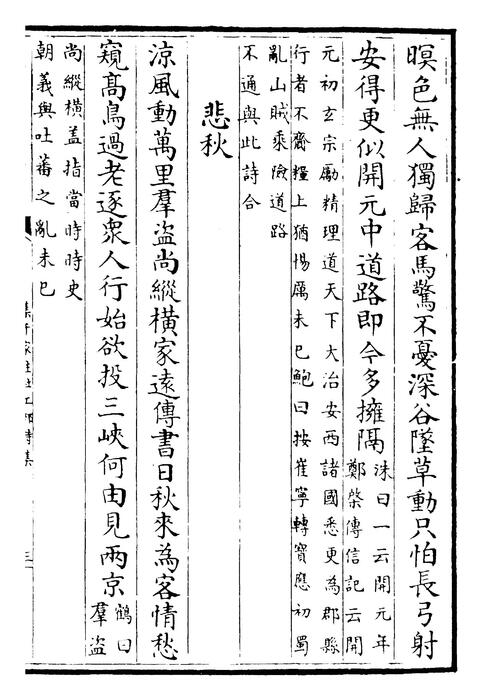 暝色無人獨歸客馬驚不憂深谷墜草動只怕長弓射
安得更似開元中道路即今多擁隔
洙曰一云開元年
鄭棨傳信記云開
元初玄宗勵精理道天下大治安西諸國悉更為郡縣
行者不齎糧上猶惕厲未已鮑曰按崔寧轉寶應初蜀
亂山賊乘險道路
不通與此詩合
悲秋
涼風動萬里羣盗尚縱橫家遠傳書日秋來為客情愁
窺髙鳥過老逐衆人行始欲投三峽何由見兩京
鶴曰
羣盗
尚縱橫盖指當時時史
朝義與吐蕃之亂未已